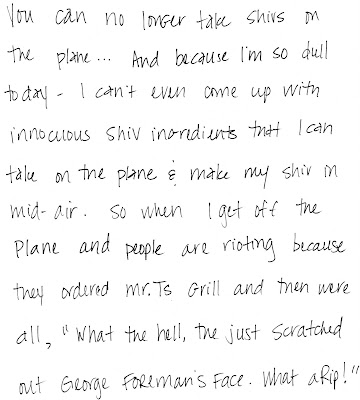 You can no longer take shivs on
the plane... And because I'm so dull
today - I can't even come up with
innocuous shiv ingredients that I can
take on the plane & make my shiv in
mid-air. So when I get off the
Plane and people are rioting because
they ordered Mr. Ts Grill and then were
all, "What the hell, the just scratched
out George Foreman's Face. What a Rip!"